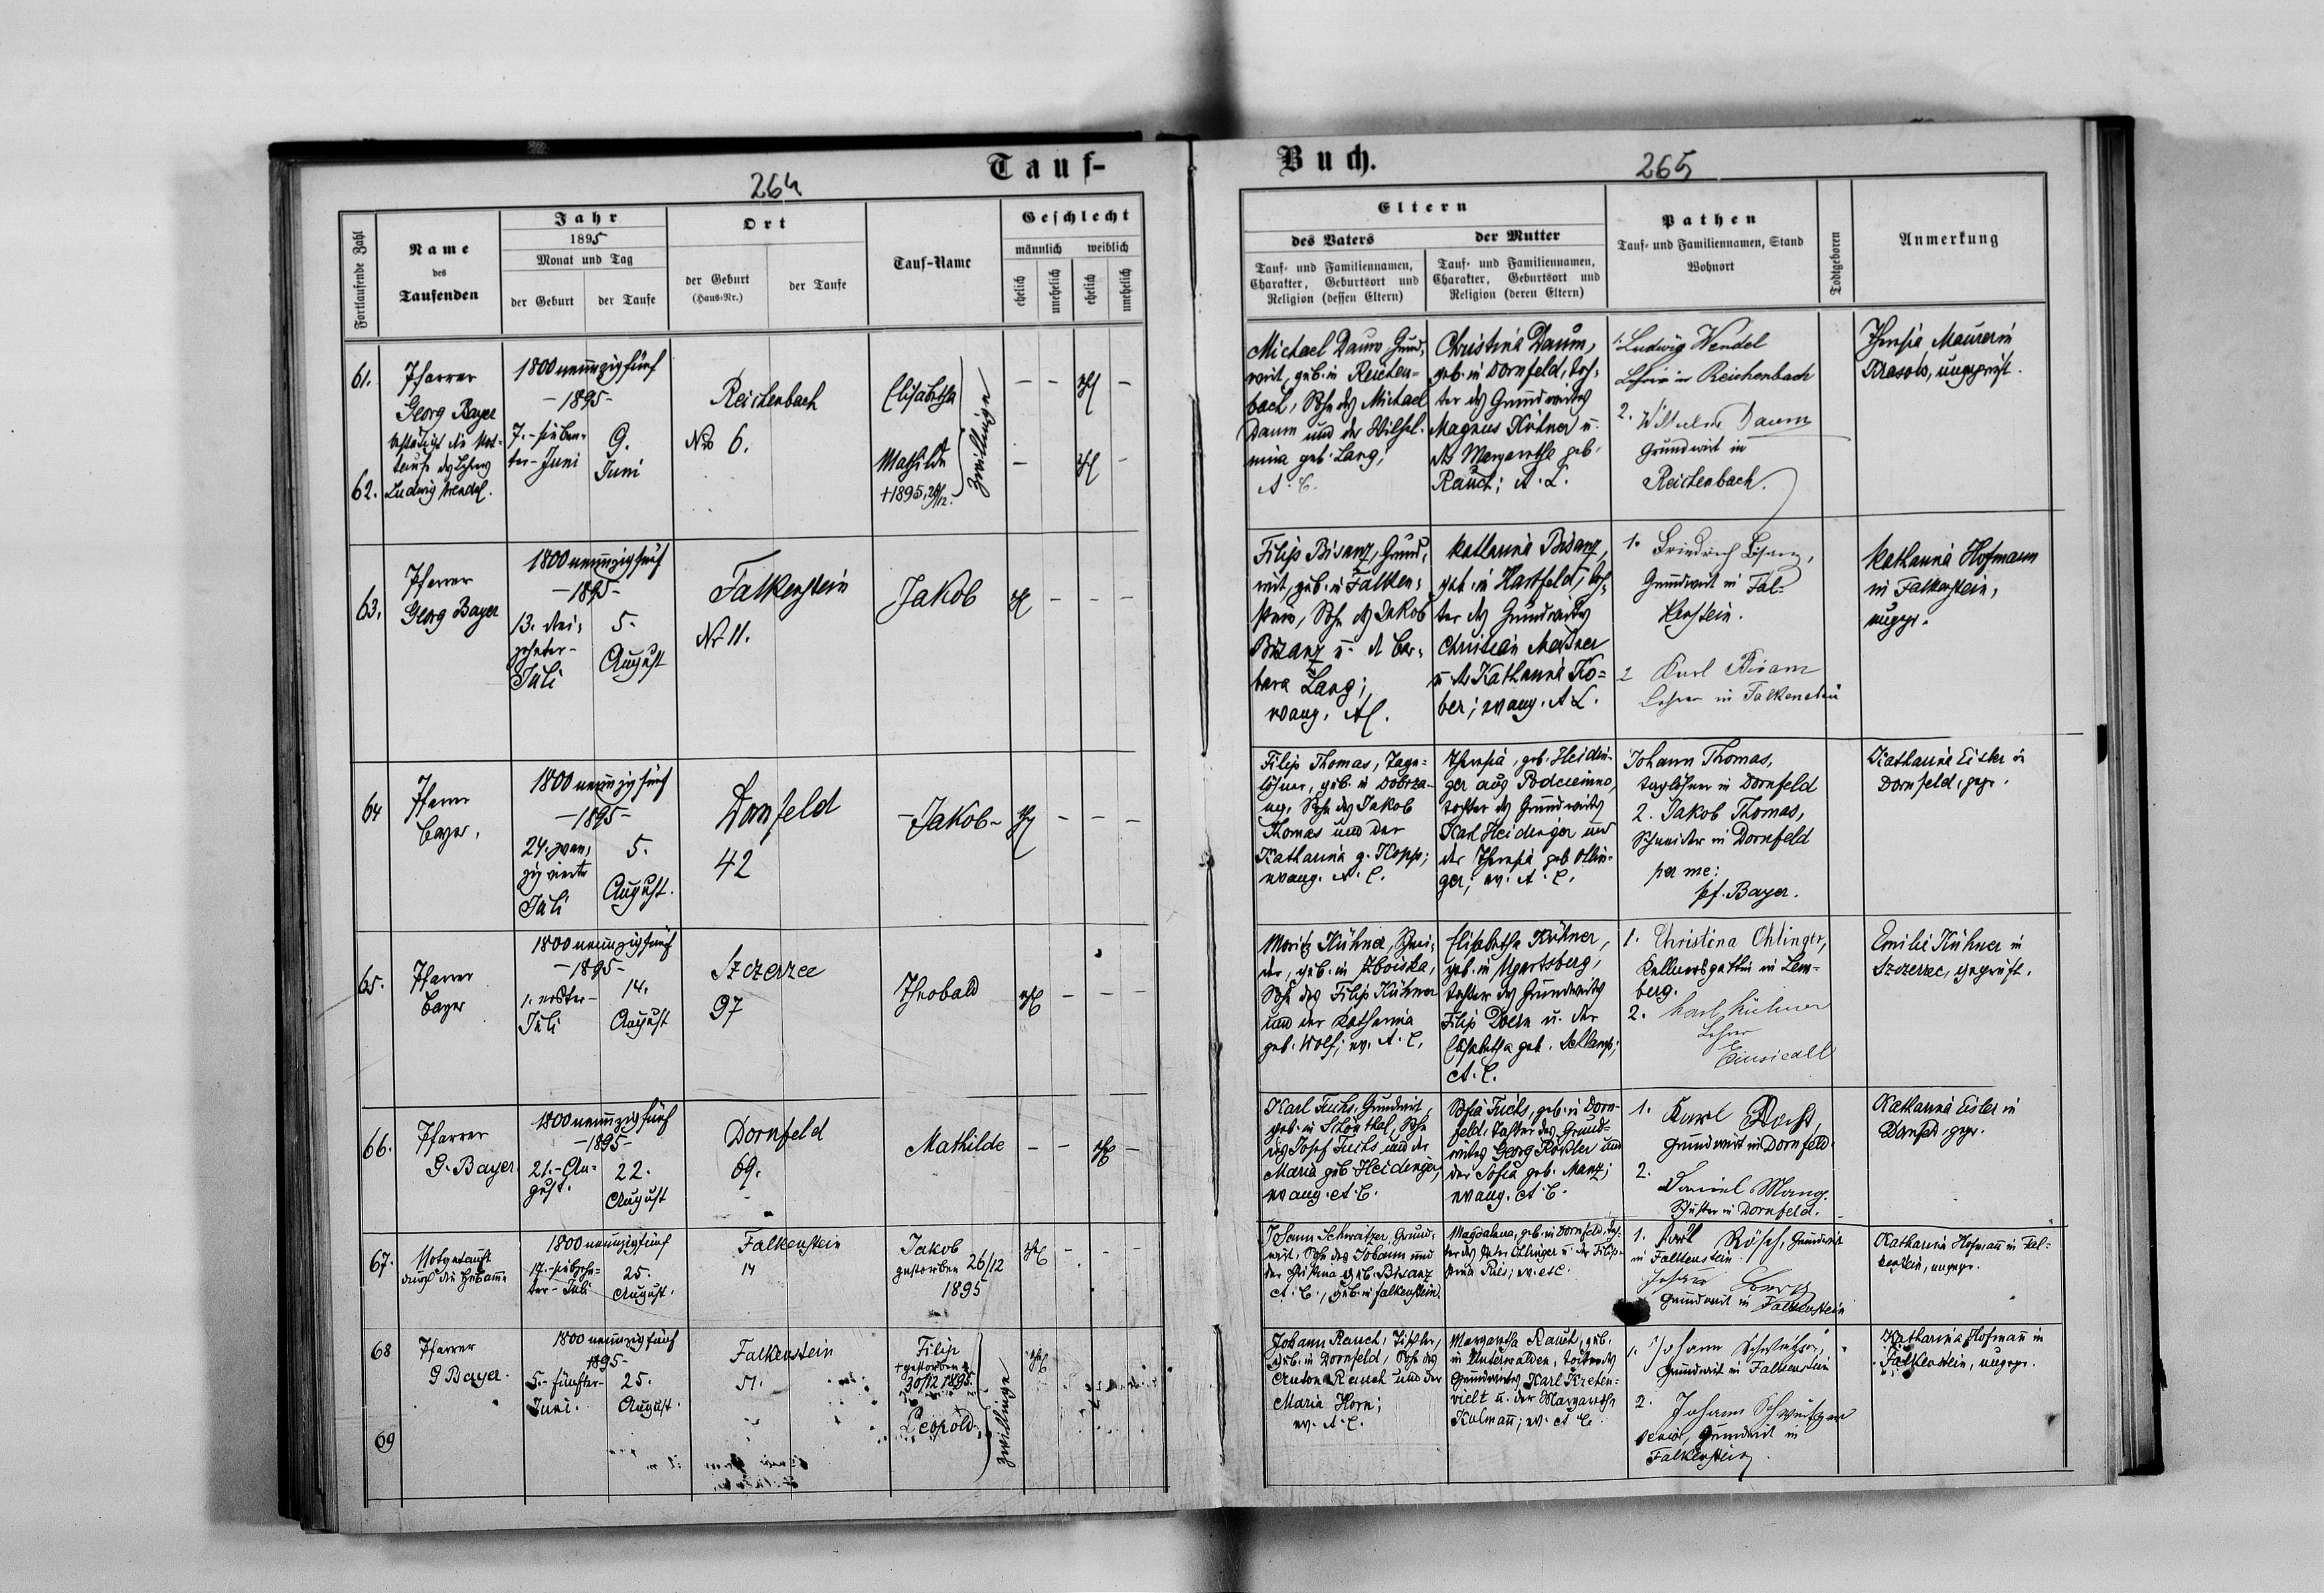 Tauf-
264
Fortlaufende Zahl
Name
des
Taufenden
Jahr
1895
Monat und Tag
der Geburt
der Taufe
Ort
der Geburt
(Haus-Nr.)
der Taufe
Tauf-Name
Geschlecht
männlich
weiblich
ehelich
unehelich
ehelich
unehelich
61.
Pfarrer
Georg Bayer
bestätigt die Not-
taufe des Lehrers
62. Ludwig Wendel.
1800 neunzigfünf
-1895-
7.- sieben-
ter- Juni
9.
Juni
Reichenbach
Nro 6.
Elisabetha
Mathilde
+1895,
Zwillinge
63.
Pfarrer
Georg Bayer
1800 neunzigfünf
-1895-
13. drei-
zehnter-
Juli
5.
August
Falkenstein
Nr. 11.
Jakob
64
Pfarrer
Bayer.
1800 neunzigfünf
-1895-
24. zwan-
zig vierte
Juli
5.
August.
Dornfeld
42
-Jakob-
65.
Pfarrer
Bayer
1800 neunzigfünf
-1895-
1. erster-
Juli
14.
August
Szczerzec
97
Theobald
66.
Pfarrer
G. Bayer
1800 neunzigfünf
-1895-
21.- Au-
gust.
22.
August
Dornfeld
69.
Mathilde
67.
Notgetauft
durch die Hebamme
1800 neunzigfünf
17.- siebzehn-
ter- Juli
25.
August.
Falkenstein
14
Jakob
gestorben 26/12
1895
68
Pfarrer
G Bayer.
1800 neunzigfünf
1895-
5.- fünfter-
Juni.
25.
August.
Falkenstein
51.
Filip
+ gestorben
30/12 1895.
69
Leopold.
Zwillinge
Buch.
265
Eltern
des Vaters
Tauf- und Familiennamen,
Charakter, Geburtsort und
Religion (dessen Eltern)
der Mutter
Tauf- und Familiennamen,
Charakter, Geburtsort und
Religion (deren Eltern)
Pathen
Tauf- und Familiennamen, Stand
Wohnort
Todtgeboren
Anmerkung
Michael Daum, Grund-
wirt, geb. in Reichen-
bach, Sohn des Michael
Daum und der Wilhel-
mina geb. Lang;
A. C.
Christina Daum,
geb. in Dornfeld, Toch-
ter des Grundwirtes
Magnus Kühner u.
der Margaretha geb.
Rauch; A. C.
1. Ludwig Wendel
Lehrer in Reichenbach
2. Wilhelm Daum
Grundwirt in
Reichenbach.
Theresia Maurer in
Krasów, ungeprüft.
Filip Bisanz, Grund-
wirt, geb. in Falken-
stein, Sohn des Jakob
Bisanz u. d. Bar-
bara Lang;
evang. AC.
Katharina Bisanz,
geb. in Hartfeld, Toch-
ter des Grundwirtes
Christian
u. der Katharina Ko-
ber; evang. A C.
1. Friedrich Bisanz,
Grundwirt in Fal-
kenstein.
2 Karl Bisanz
Lehrer in Falkenstein
Katharina Hofmann
in Falkenstein,
ungepr.
Filip Thomas, Tage-
löhner, geb. in Dobrza-
ny, Sohn des Jakob
Thomas und der
Katharina g. Kopp;
evang. A. C.
Theresia, geb. Heidin-
ger aus
Tochter des Grundwirtes
Karl Heidinger und
der Theresia geb. Ohlin-
ger; ev. A. C.
Johann Thomas,
Taglöhner in Dornfeld
2. Jakob Thomas,
Schneider in Dornfeld
per me:
pf. Bayer.
Katharina Eisler in
Dornfeld, gepr.
Moritz Kühner, Schnei-
der, geb. in Zboiska,
Sohn des Filip Kühner
und der Katharina
geb. Wolf; ev. A. C.
Elisabetha Kühner,
geb. in Ugartsberg,
Tochter des Grundwirtes
Filip Doern u. der
Elisabetha geb. Schlamp;
A. C.
1. Christina Ohlinger,
Kellnersgattin in Lem-
berg.
2. Karl Kühner
Lehrer
Einsiedel
Emilie Kühner in
Szczerzec, geprüft.
Karl Fuchs, Grundwirt,
geb. in Schönthal, Sohn
des Josef Fuchs und der
Maria geb. Heidinger,
evang. A. C.
Sofia Fuchs, geb. in Dorn-
feld, Tochter des Grund-
wirtes Georg Rössler und
der Sofia geb. Manz;
evang. A. C.
1. Karl
Grundwirt in Dornfeld.
2.
Daniel Manz.
Schuster in Dornfeld.
Katharina Eisler in
Dornfeld, gepr.
Johann Schweitzer, Grund-
wirt, Sohn des Johann und
der Christina geb. Bisanz
A. C., geb. in Falkenstein.
Magdalena, geb. in Dornfeld, Toch-
ter des Peter Ohlinger u. der Filip-
pina Ries; ev. A.C.
1. Karl Rösch, Grundwirt
in Falkenstein
Johann
Grundwirt in Falkenstein
Katharina Hofmann in Fal-
kenstein, ungepr.
Johann Rauch, Tischler,
geb. in Dornfeld, Sohn des
Anton Rauch und der
Maria Horn;
ev. A. C.
Margaretha Rauch, geb.
in Unterwalden, Tochter des
Grundwirtes Karl Kreten-
vielt u. der Margaretha
Kulmann; ev. A C.
1. Johann Schweitzer,
Grundwirt in Falkenstein
2. Johann Schweitzer
senior, Grundwirt in
Falkenstein
Katharina Hofmann in
Falkenstein, ungepr.